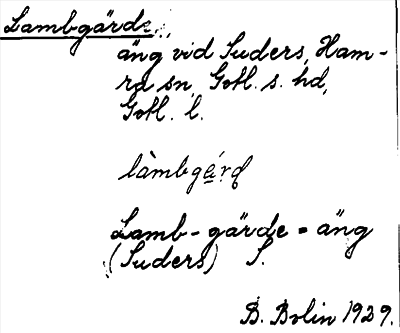 Lambgärde,
äng vid Suders, Ham-
ra sn, Gotl. s. hd,
Gotl. l.
làmbgárd
Lamb-gärde = äng
(Suders) S.
B. Bolin 1929.